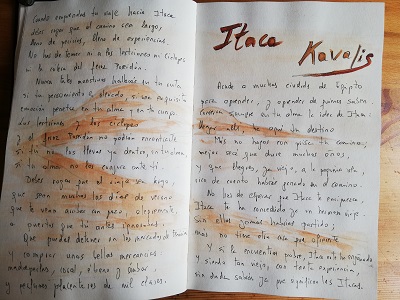 Cuando emprendas tu viaje hacia Itaca
debes rogar que el camino sea largo,
lleno de peligros, lleno de experiencias.
No has de temer ni a los lestrigones ni cíclopes
ni la cólera del Poseidón.
Nunca tales monstruos hallarás en tu ruta
si tu pensamiento es elevado, si una exquisita
emoción penetra en tu alma y en tu cuerpo.
Los lestrigones y los cíclopes
y el Poseidón no podrán encontrarte
si tú no los llevas ya dentro, en tu alma,
si tu alma no los conjura ante ti.
Debes rogar que el viaje sea largo,
que sean muchos los días de verano
que te vean arribar con gozo, alegremente,
a puertos que tú antes ignorabas.
Que puedas detener en los mercados de Fenicia
y comprar unas bellas mercancías
madreperlas, coral, ébano y ámbar
y perfumes placenteros de mil clases.
Itaca
Kavafis
Acude a muchas ciudades de Egipto
para aprender, y aprender de quienes saben.
Conserva siempre en tu alma la idea de Itaca:
llegar allí, he aquí tu destino
Mas no hagas con prisas tu camino;
mejor será que dure muchos años,
y que llegues, ya viejo, a la pequeña isla,
rico de cuanto habrás ganado en el camino.
No has de esperar que Itaca te enriquezca:
Itaca te ha concedido ya un hermoso viaje
sin ellas jamás habrías partido;
mas no tiene otra cosa que ofrecerte
Y si la encuentras pobre, Itaca no te ha engañado
y siendo tan viejo, con tanta experiencia,
sin duda sabrás ya qué significan las Itacas.